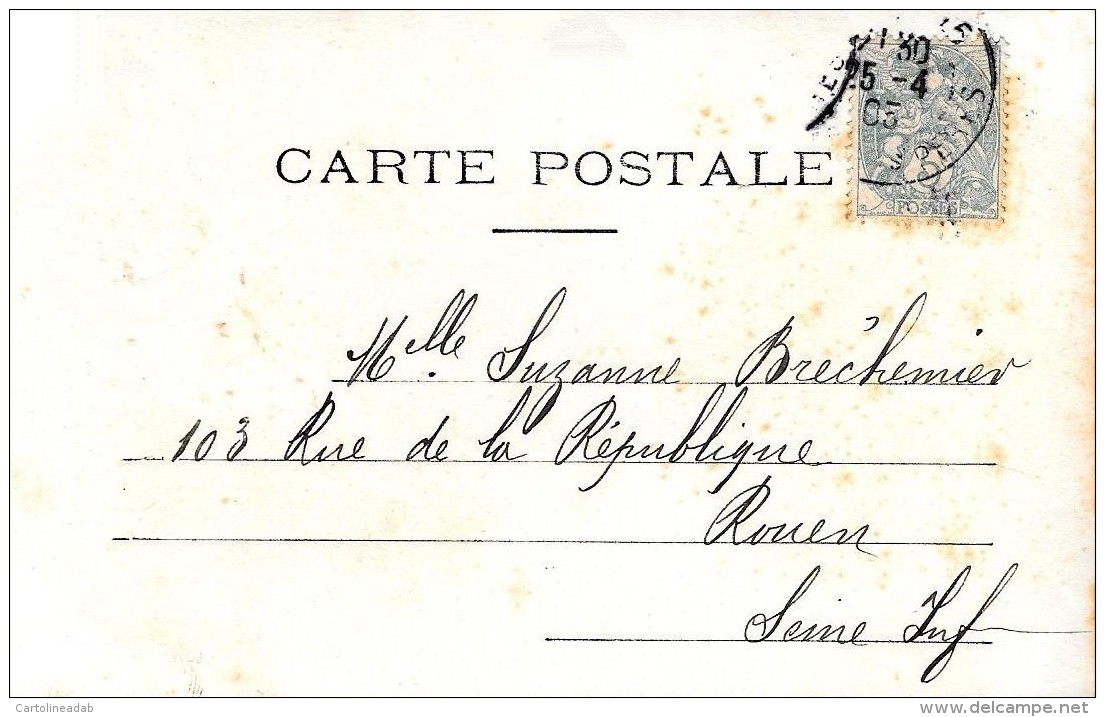 30
25 -4
03
CARTE POSTALE
POSTES
Mlle. Suzanne Bréchemier
103 Rue de la République
Rouen
Seine Inf
Cartolineadab
www.delcampe.net